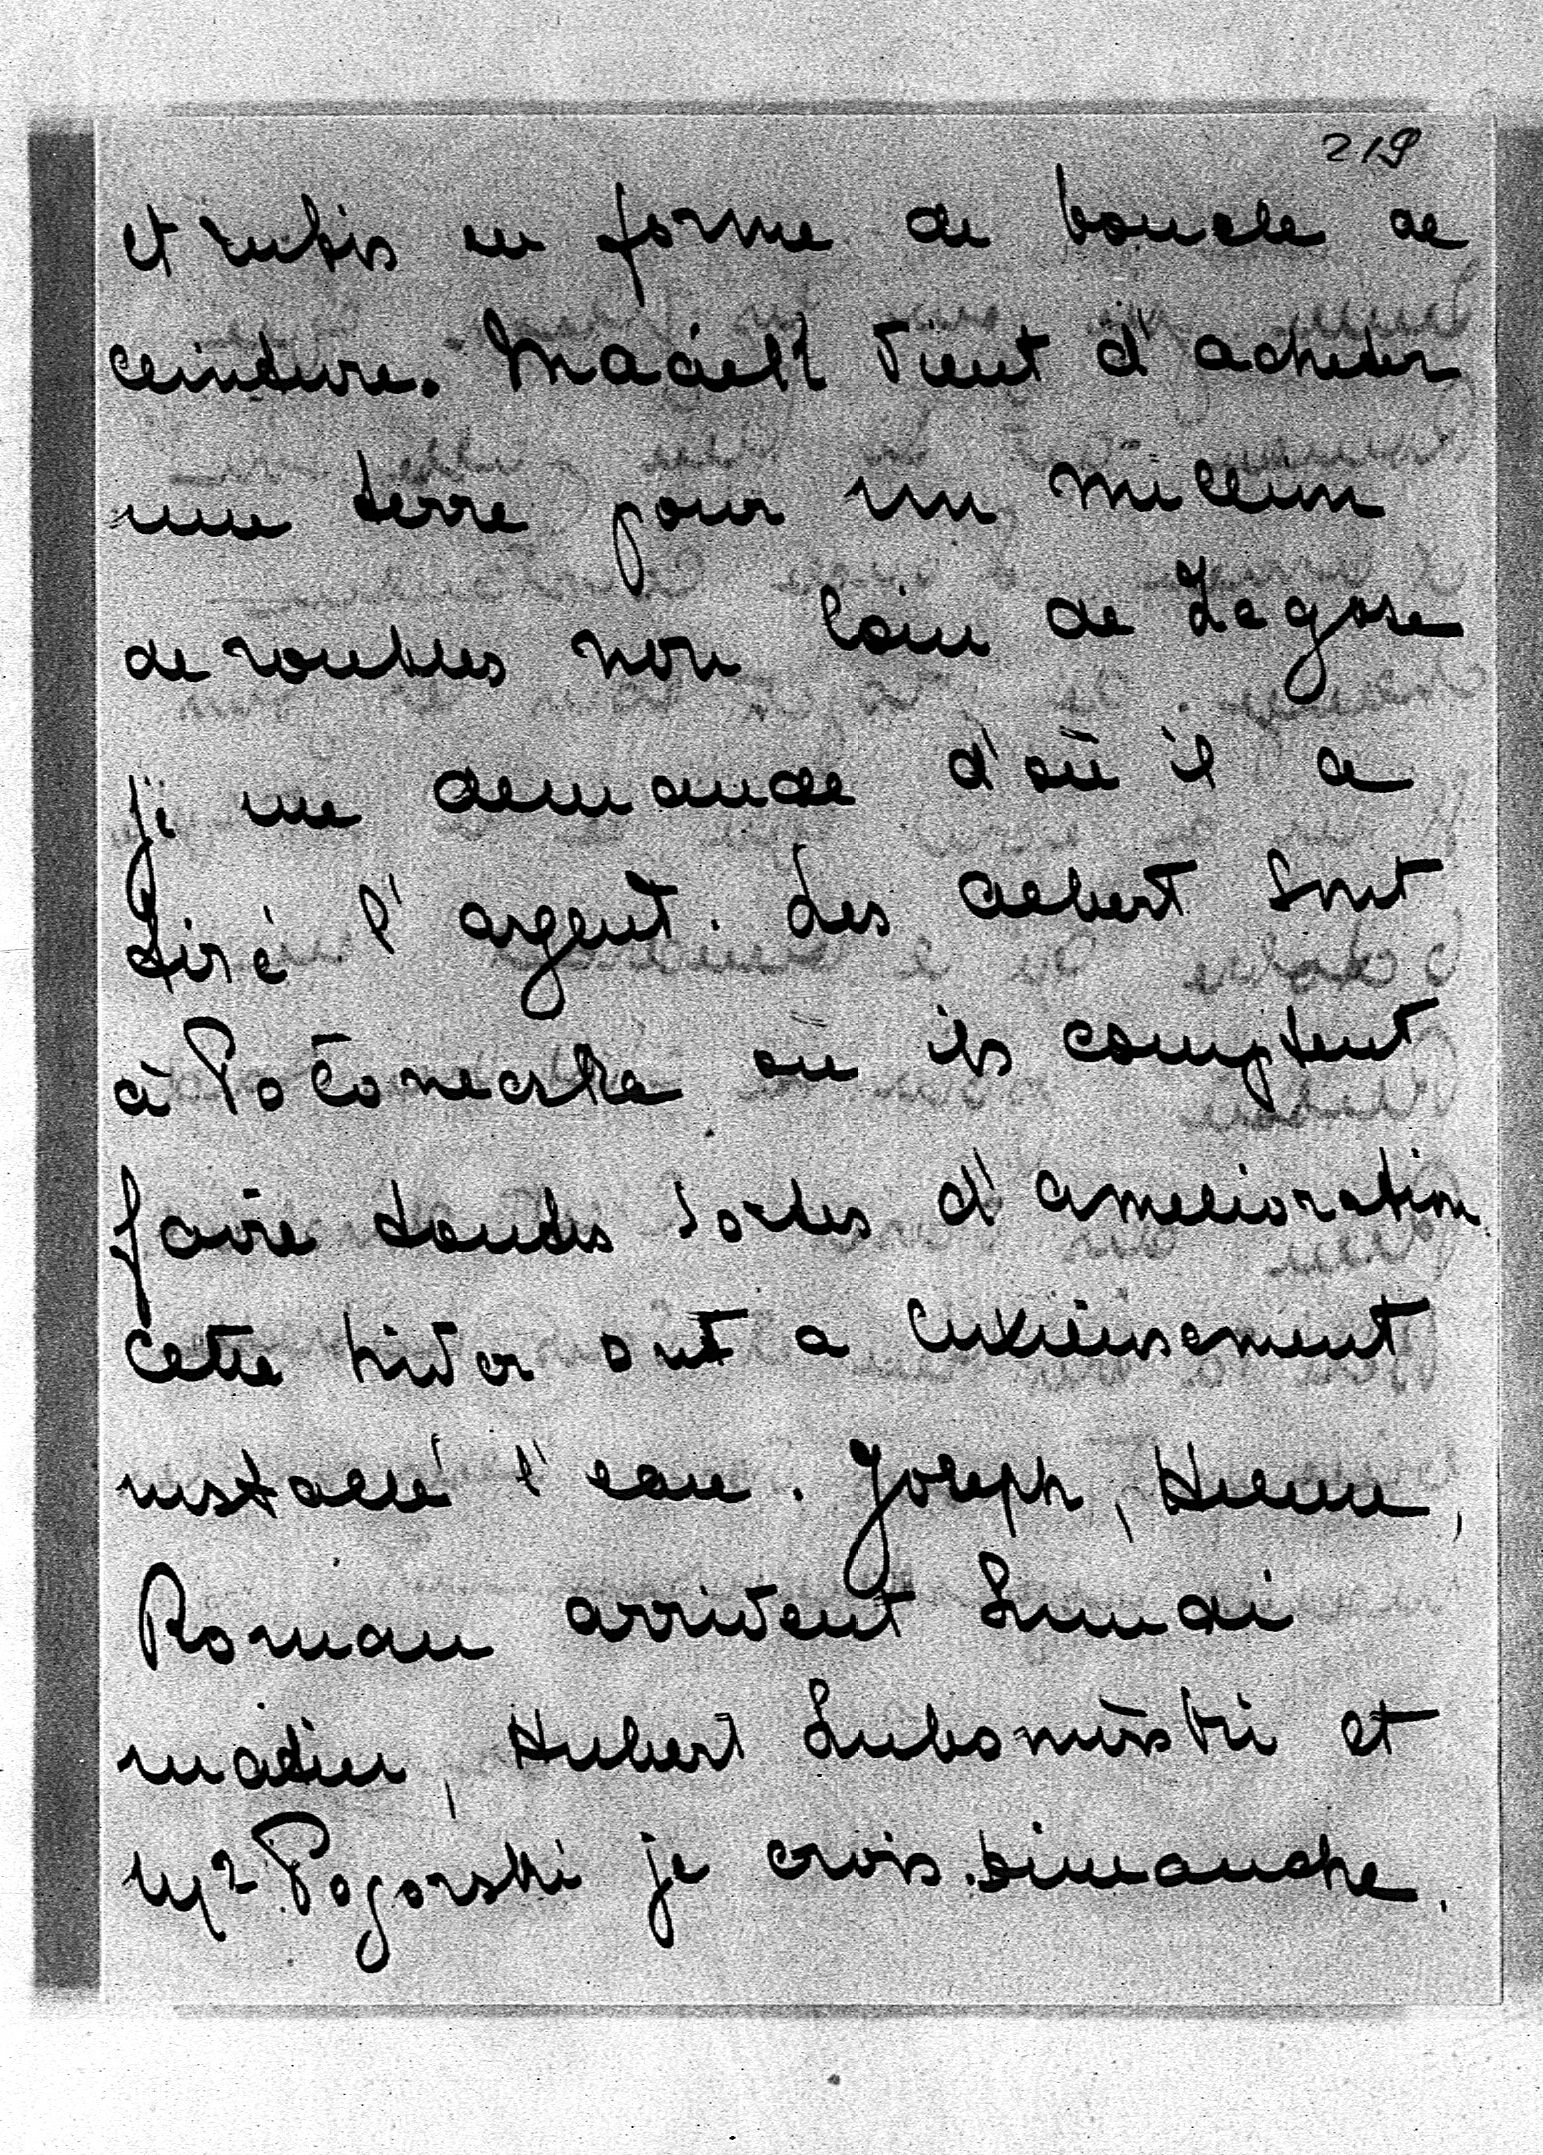 219
et rubis en forme de boucle de
ceinture. vient d'acheter
une terre pour un million
de roubles non loin de
je me demande d'où il a
tiré l'argent. Les Albert sont
à où ils comptent
faire toutes sortes d'amelioration
cette hiver ont a
installé l'eau. Joseph, Helene,
Roman arrivent Lundi
matin, Hubert Lubomirski et
Mr Pogorski je crois dimanche.